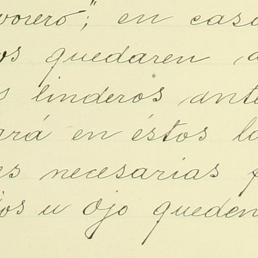 vorero"; en caso
os quedaren
s linderos ante
ará en éstos la
es necesarias
jos u Ojo queden